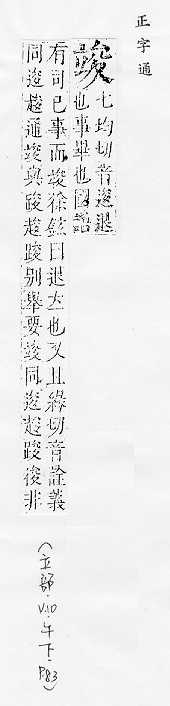 正字通
竣 七均切音逡退
也事畢也國語
有司已事而竣徐鉉曰退立也又且緣切音詮義
同逡通竣與踆别舉要竣同逡踆非
(立部·V.10·午下·P.83)